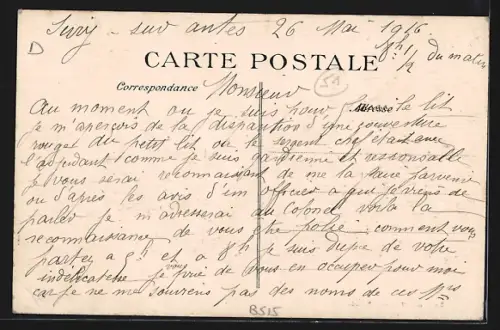 D
Sivry - sur antes 26 Mai 1916
8h 1/2 du matin
CARTE POSTALE
Correspondance
Monsieur
51
au moment ou je suis pour le lit
je m'aperçois de la disparition d'une couverture
rouge du petit lit ou le sergent chef était
comme je suis gardienne et responsable
je vous serai reconnaissant de me la faire parvenir
ou d'après les avis d'un officier a qui je viens de
parler je m'adresserai au Colonel voila la
reconnaissance de vous être polie comment vous
partez a 5h et a 8h je suis dupe de votre
indélicatesse je vous prie de vous en occuper pour moi
car je ne me souviens pas des noms de ces Mrs
B515